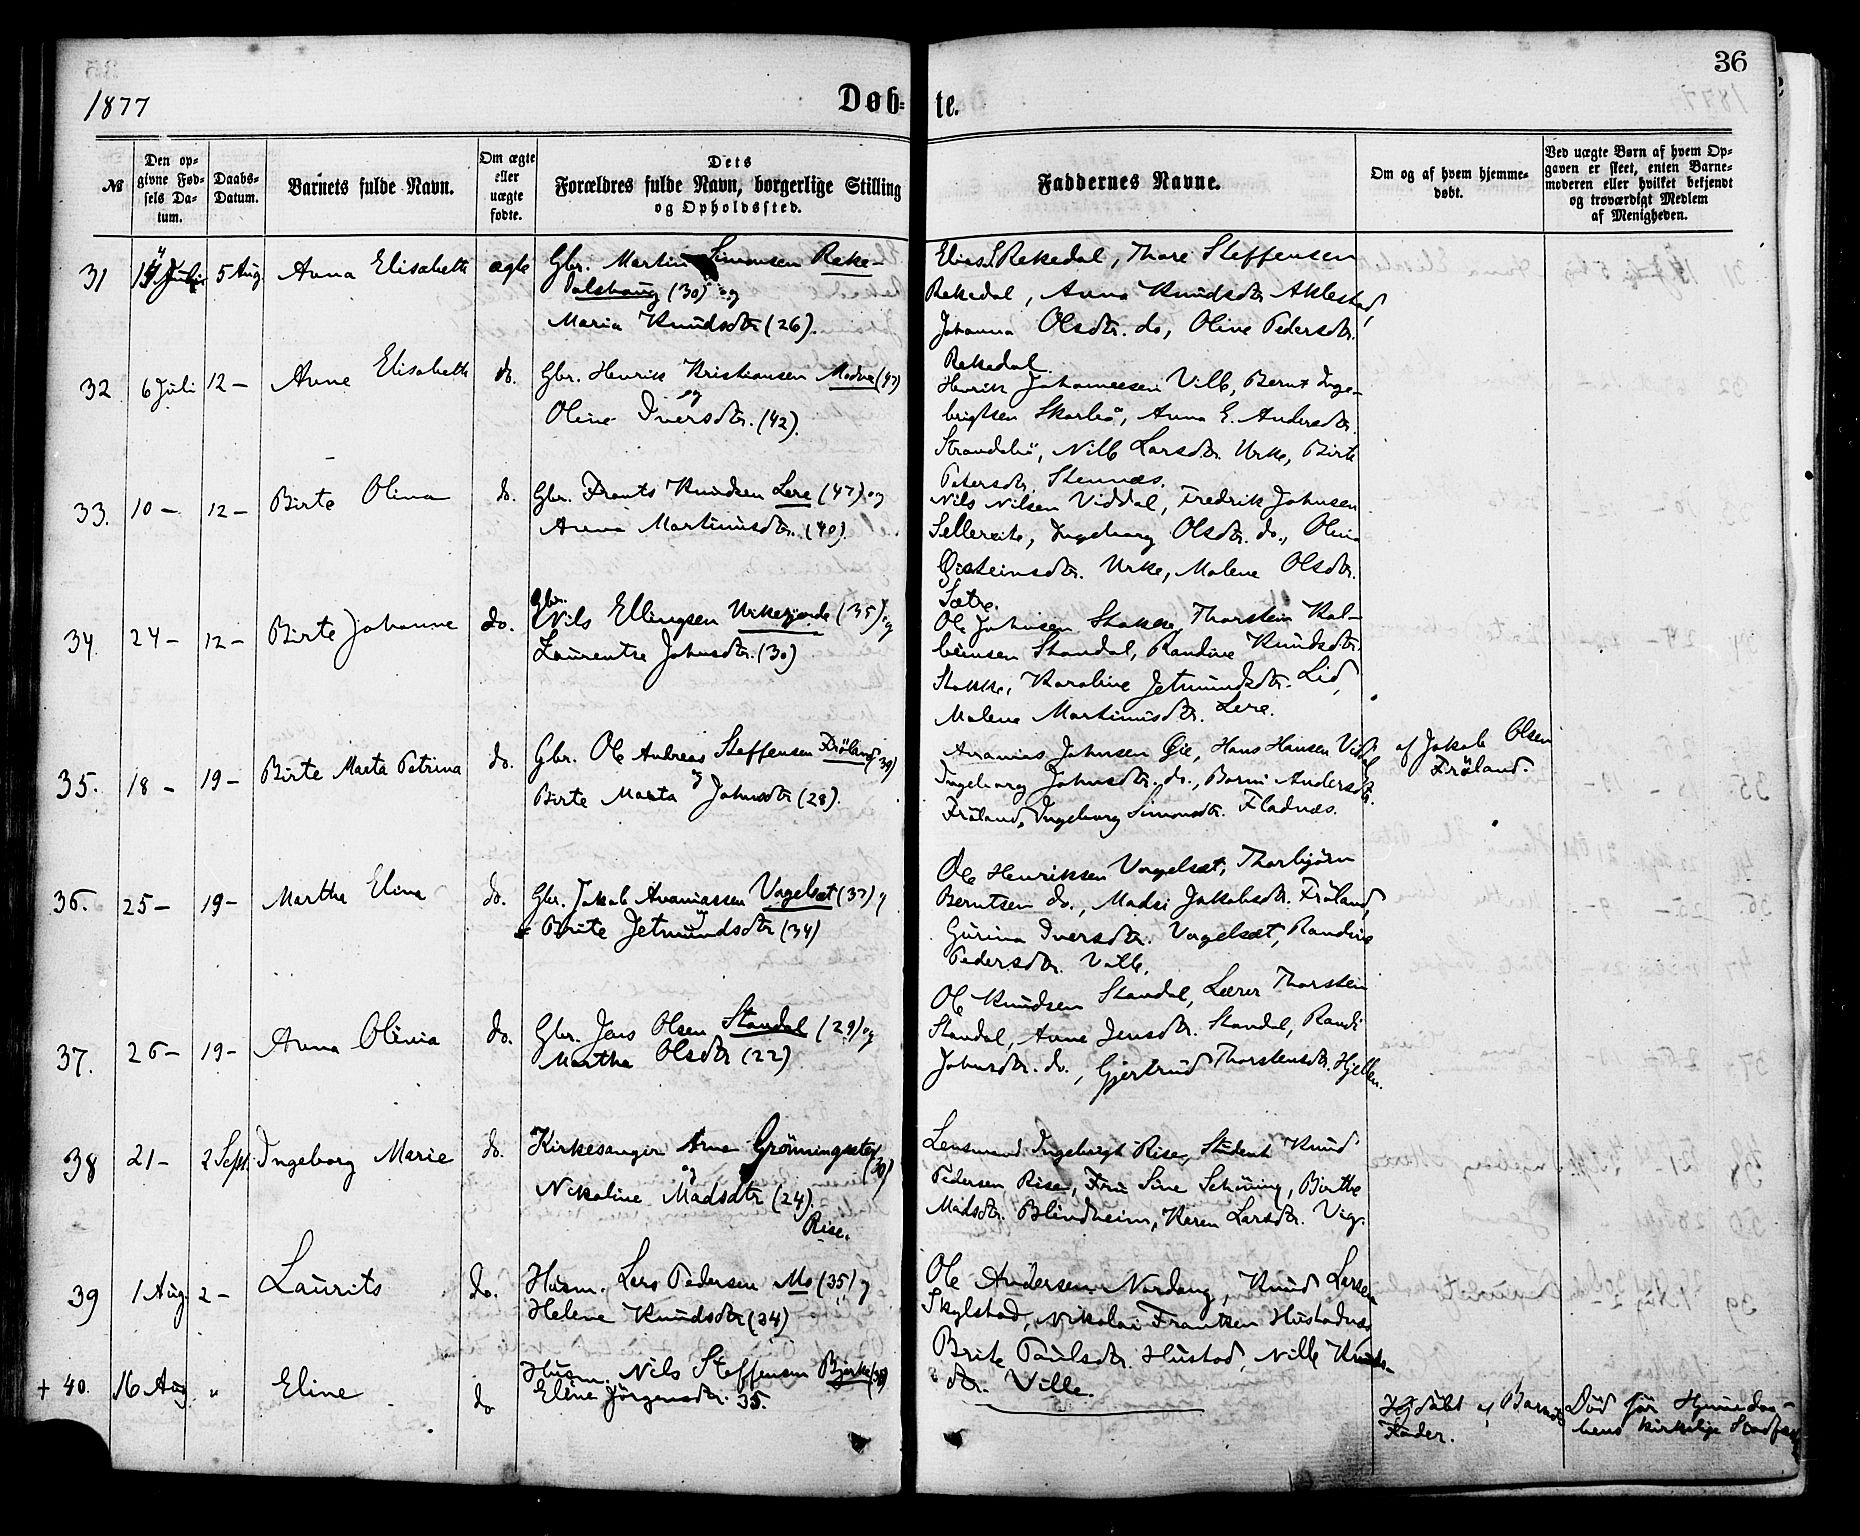 36
1877
Døb-
te.
№
Den op-
givne Fød-
sels Da-
tum.
Daabs-
Datum.
Barnets fulde Navn.
Om ægte
eller
uægte
fødte.
Dets
Forældres fulde Navn, borgerlige Stilling
og Opholdssted.
Faddernes Navne.
Om og af hvem hjemme-
døbt.
Ved uægte Børn af hvem Op-
gaven er skeet, enten Barne-
moderen eller hvilket bekjendt
og troværdigt Medlem
af Menigheden.
31 Juli 5 Aug Anna Elisabeth ægte Gbr. Martin Simonsen Reke-
dalshaug (30) og
Maria Knudsdtr (26).
Elias Rekedal, Thore Steffensen
Rekedal, Anna Knudsdtr Aklestad,
Johanna Olsdtr. do, Oline Pedersdtr.
Rekedal.
32 6 Juli 12 - Anne Elisabeth do. Gbr. Henrik Kristiansen (47)
og
Oline Iversdtr. (42).
Henrik Johannesen Ville, Bernt Inge-
brigtsen Skarbö, Anna E. Andersdtr.
Strandabö, Nille Larsdtr. Urke, Birte
Petersdtr. Stennæs.
33. 10 - 12 - Birte Olina do. Gbr. Frants Knudsen Lere (47) og
Anna Martinusdtr. (40).
Nils Nilsen Viddal, Fredrik Johnsen
Sellereite, Ingeborg Olsdtr. do., Olina
Øisteinsdtr. Urke, Malene Olsdtr.
Sætre.
34. 24 - 12 - Birte Johanne do. Gbr.
Nils Ellingsen Urkegjerde (35) og
Laurentse Johnsdtr. (30)
Ole Johnsen Stokke, Thorstein Kol-
beinsen Standal, Randine Knudsdtr.
Stokke, Karoline Jetmundsdtr. Lid,
Malene Martinusdtr. Lere.
35. 18 - 19 - Birte Marta Petrina do. Gbr. Ole Andreas Steffensen Fröland (39)
og
Birte Marta Johnsdtr (28).
Ananias Johnsen Øie, Hans Hansen Viddal,
Ingeborg Johnsdtr. do., Andersdtr.
Fröland, Ingeborg Simonsdtr. Fladnæs.
af Jakob Olsen
Fröland.
36. 25 - 19 - Martha Elina do. Gbr. Jakob Ananiassen Vagelsæt (37) og
Brite Jetmundsdtr (34)
Ole Henriksen Vagelsæt, Thorbjörn
Berntsen do., Madsi Jakobsdtr. Fröland,
Gurina Iversdtr. Vagelsæt, Randine
Pedersdtr. Ville.
37. 26 - 19 - Anna Olivia do. Gbr. Jens Olsen Standal (29) og
Martha Olsdtr (22)
Ole Knudsen Standal, Lærer Thorstein
Standal, Anne Jensdtr. Standal, Randi
Johnsdtr. do., Gjertrud Thorstensdtr. Hjellen.
38 21 - 2 Sept. Ingeborg Marie do. Kirkesanger Arne Grönningsæter (30)
og
Nikoline Madsdtr (24).
Rise.
Lensmand Ingebrigt Rise, Student Knud
Pedersen Rise, Fru Sine Schöning, Berthe
Madsdtr. Blindheim, Karen Larsdtr. Vig.
39 1 Aug. 2 - Laurits do. Husm. Lars Pedersen Mo (35) og
Helene Knudsdtr (34)
Ole Andersen Nordang, Knud Larsen
Skylstad, Nikolai Frantsen Hustadnæs
Brite Paulsdtr. Hustad, Nille Knuds-
dtr. Ville.
+ 40. 16 Aug. " Eline do Husm. Nils Steffensen Bjerke (38)
Eline Jörgensdtr. 35.
Hjdöbt af Barnets
Fader.
Död før Hjemmedaa-
bens kirkelige Stadfæst